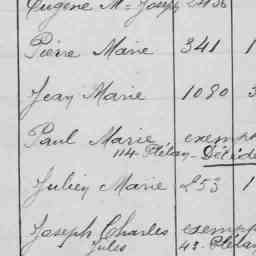 Eugène M= Joseph 2436
Pierre Marie 341 1
Jean Marie 1080 3
Paul Marie exempt
114 Plélan - Décidé
Julien Marie 253 1
Joseph Charles exempt
Jules 48 - Plélan